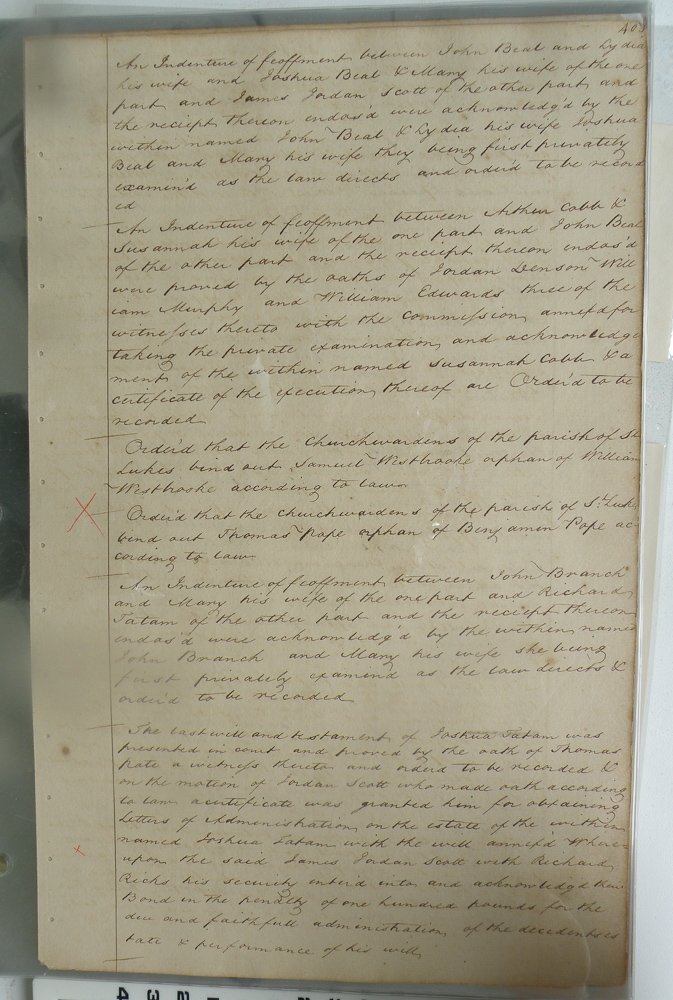 An Indenture of feoffment between John Beal and Lydia
his wife and Joshua Beal & Mary his wife of the one
part and James Jordan Scott of the other part and
the reciept thereon endos'd were acknowledg'd by the
within named John Beal & Lydia his wife Joshua
Beal and Mary his wife they being first privately
examin'd as the law directs and order'd to be record
ed
An Indenture of feoffment between Arthur Cobb &
Susannah his wife of the one part and John Beal
of the other part and the reciept thereon endos'd
were proved by the oaths of Jordan Denson Will
iam Murphy and William Edwards three of the
witnesses thereto with the commission annex'd for
taking the private examination and acknowledge
ment of the within named Susannah Cobb & a
certificate of the execution thereof are Order'd to be
recorded
Order'd that the Churchwardens of the parish of St
Lukes bind out Samuel Westbrooke orphan of William
Westbrooke according to law
Order'd that the Churchwardens of the parish of St. Lukes
bind out Thomas Pope orphan of Benjamin Pope ac-
cording to law
An Indenture of feoffment between John Branch
and Mary his wife of the one part and Richard
Tatam of the other part and the reciept thereon
endos'd were acknowledg'd by the within named
John Branch and Mary his wife she being
first privately examind as the law directs &
order'd to be recorded
The last will and testament of Joshua Tatam was
presented in court and proved by the oath of Thomas
pate a witness thereto and orderd to be recorded &
on the motion of Jordan Scott who made oath according
to law a certificate was granted him for obtaining
Letters of Administration on the estate of the within
named Joshua Tatam with the will annex'd Where-
upon the said James Jordan Scott with Richard
Ricks his security enter'd into and acknowledgd their
Bond in the penalty of one hundred pounds for the
due and faithfull administration of the decedents es
tate & performance of his will